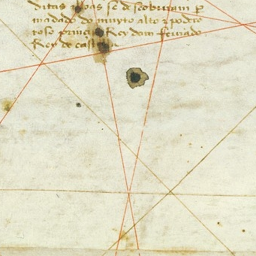 ditas ilhas se descobriram p
mādado do muyto alto & podero
roso principe Rey dom fernādo
Rey de castella